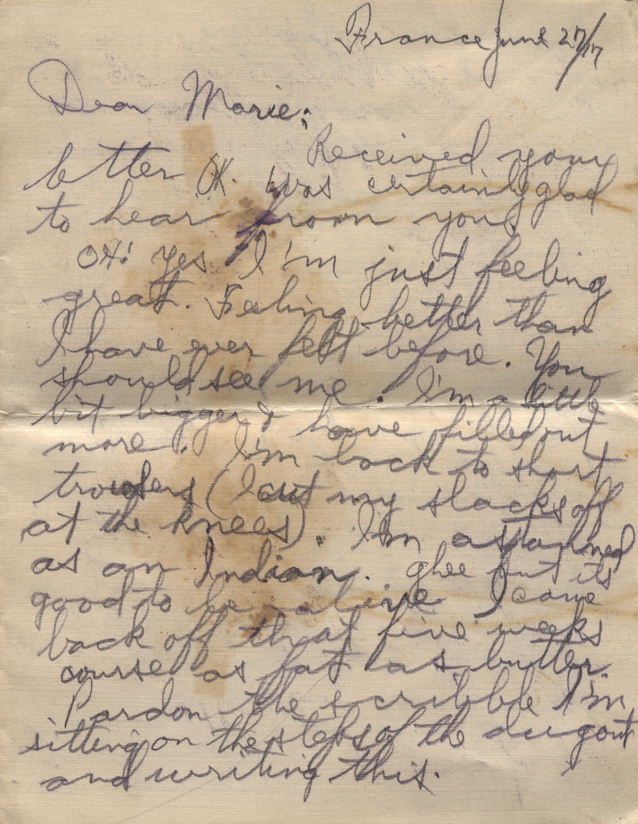 France June 27/17
Dear Marie;
Received your
letter OK. Was certainly glad
to hear from you.
OH! Yes I'm just feeling
great. Feeling better than
I have ever felt before. You
should see me. I'm a little
bit bigger & have filled out
more. I'm back to short
trousers (I cut my slacks off
at the knees). I'm as tanned
as an Indian. Ghee but its
good to be alive I came
back off that five weeks
course as fat as butter.
Pardon the scribble I'm
sitting on the steps of the dugout
and writing this.